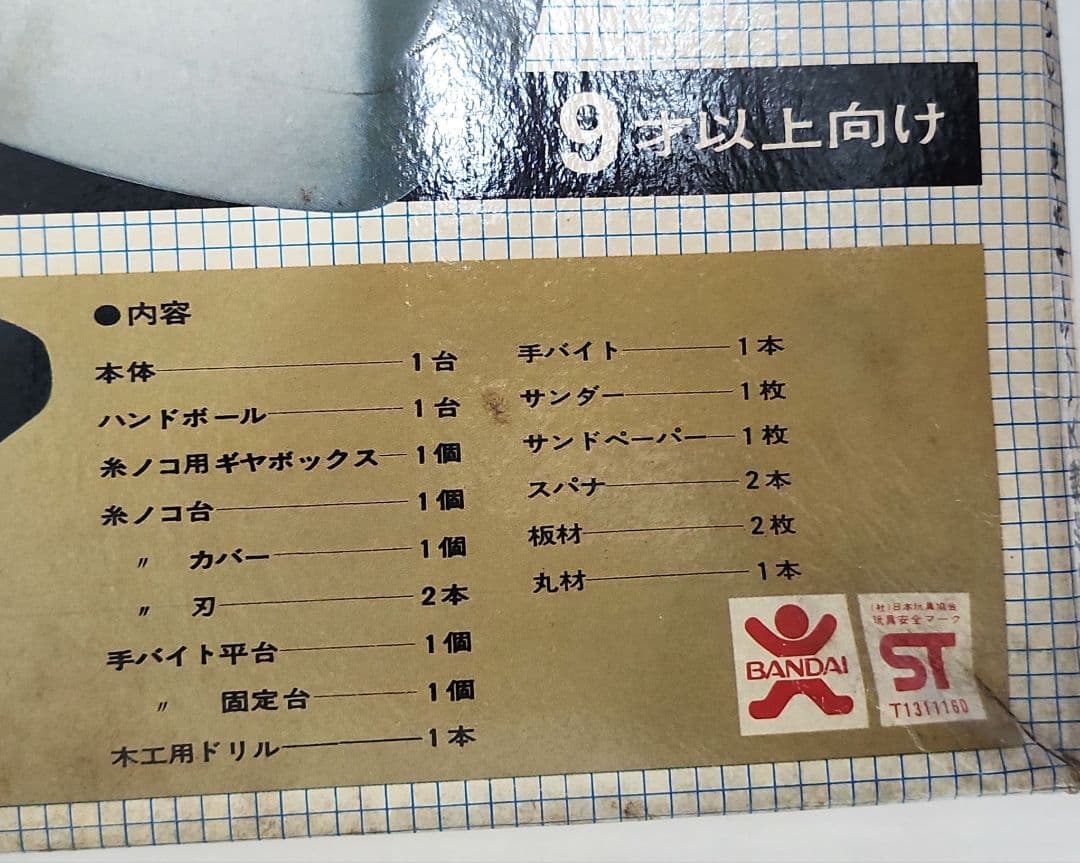 9才以上向け
●内容
本体 1台
ハンドボール 1台
糸ノコ用ギヤボックス 1個
糸ノコ台 1個
〃 カバー 1個
〃 刃 2本
手バイト平台 1個
〃 固定台 1個
木工用ドリル 1本
手バイト 1本
サンダー 1枚
サンドペーパー 1枚
スパナ 2本
板材 2枚
丸材 1本
BANDAI
(社)日本玩具協会
玩具安全マーク
ST
T1311160